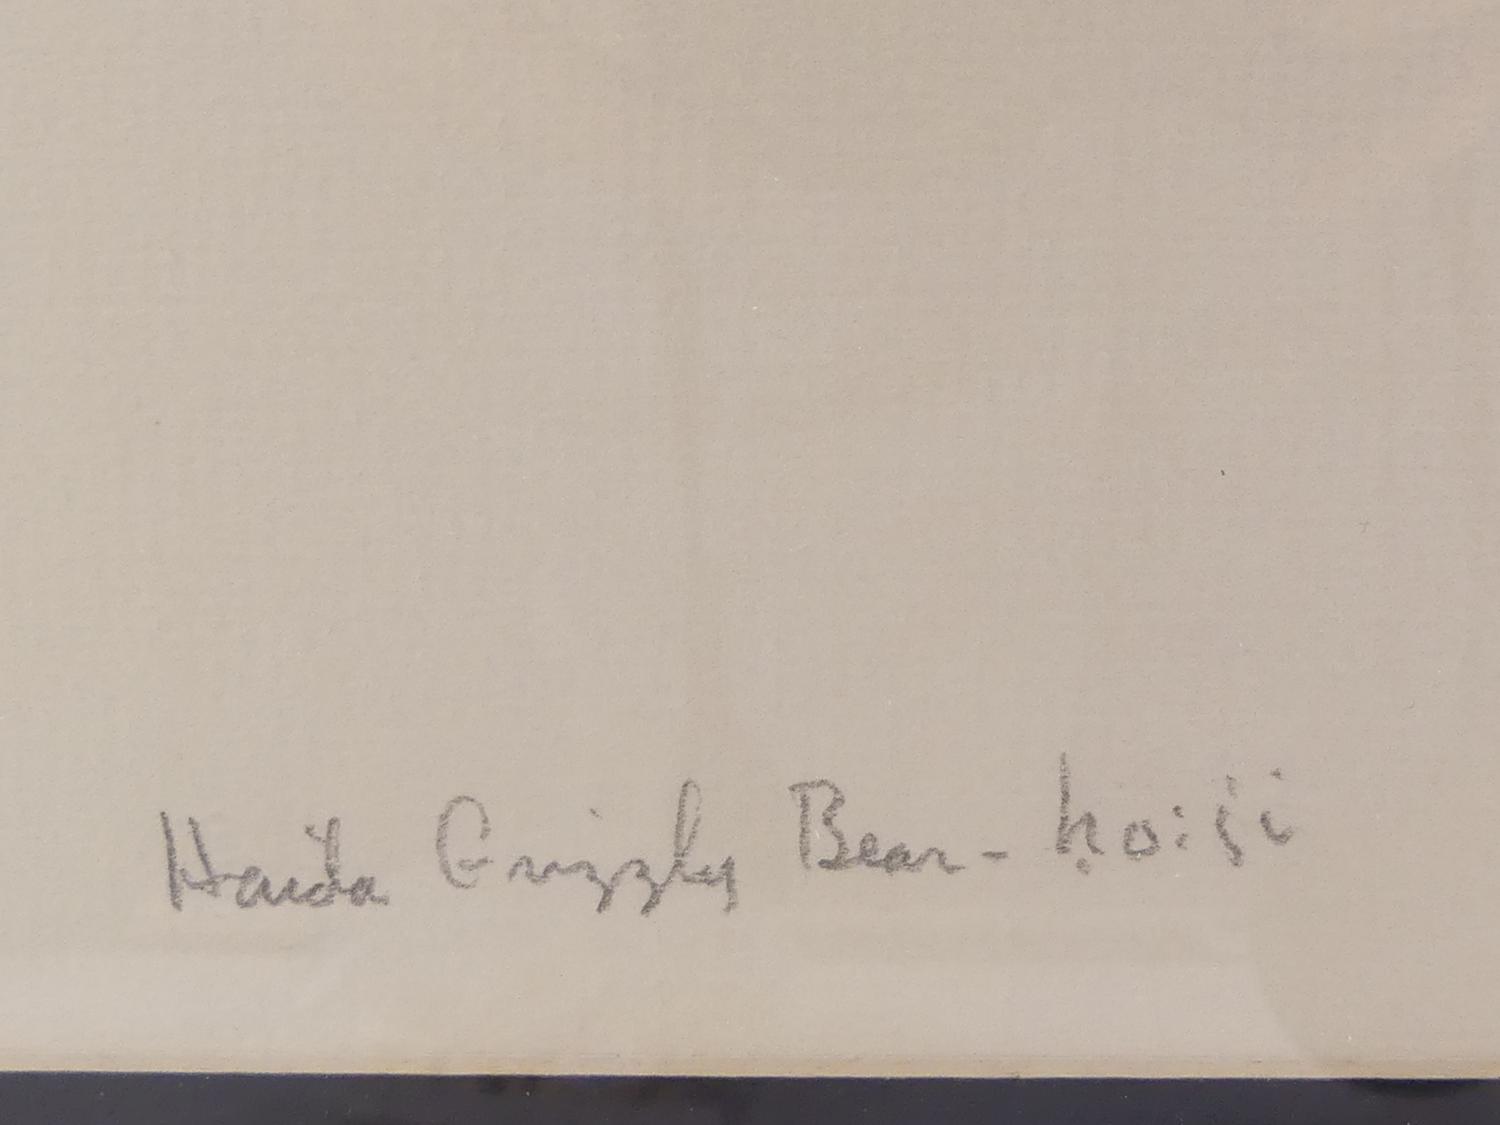 Haida Grizzly Bear - ḥo:ʃi